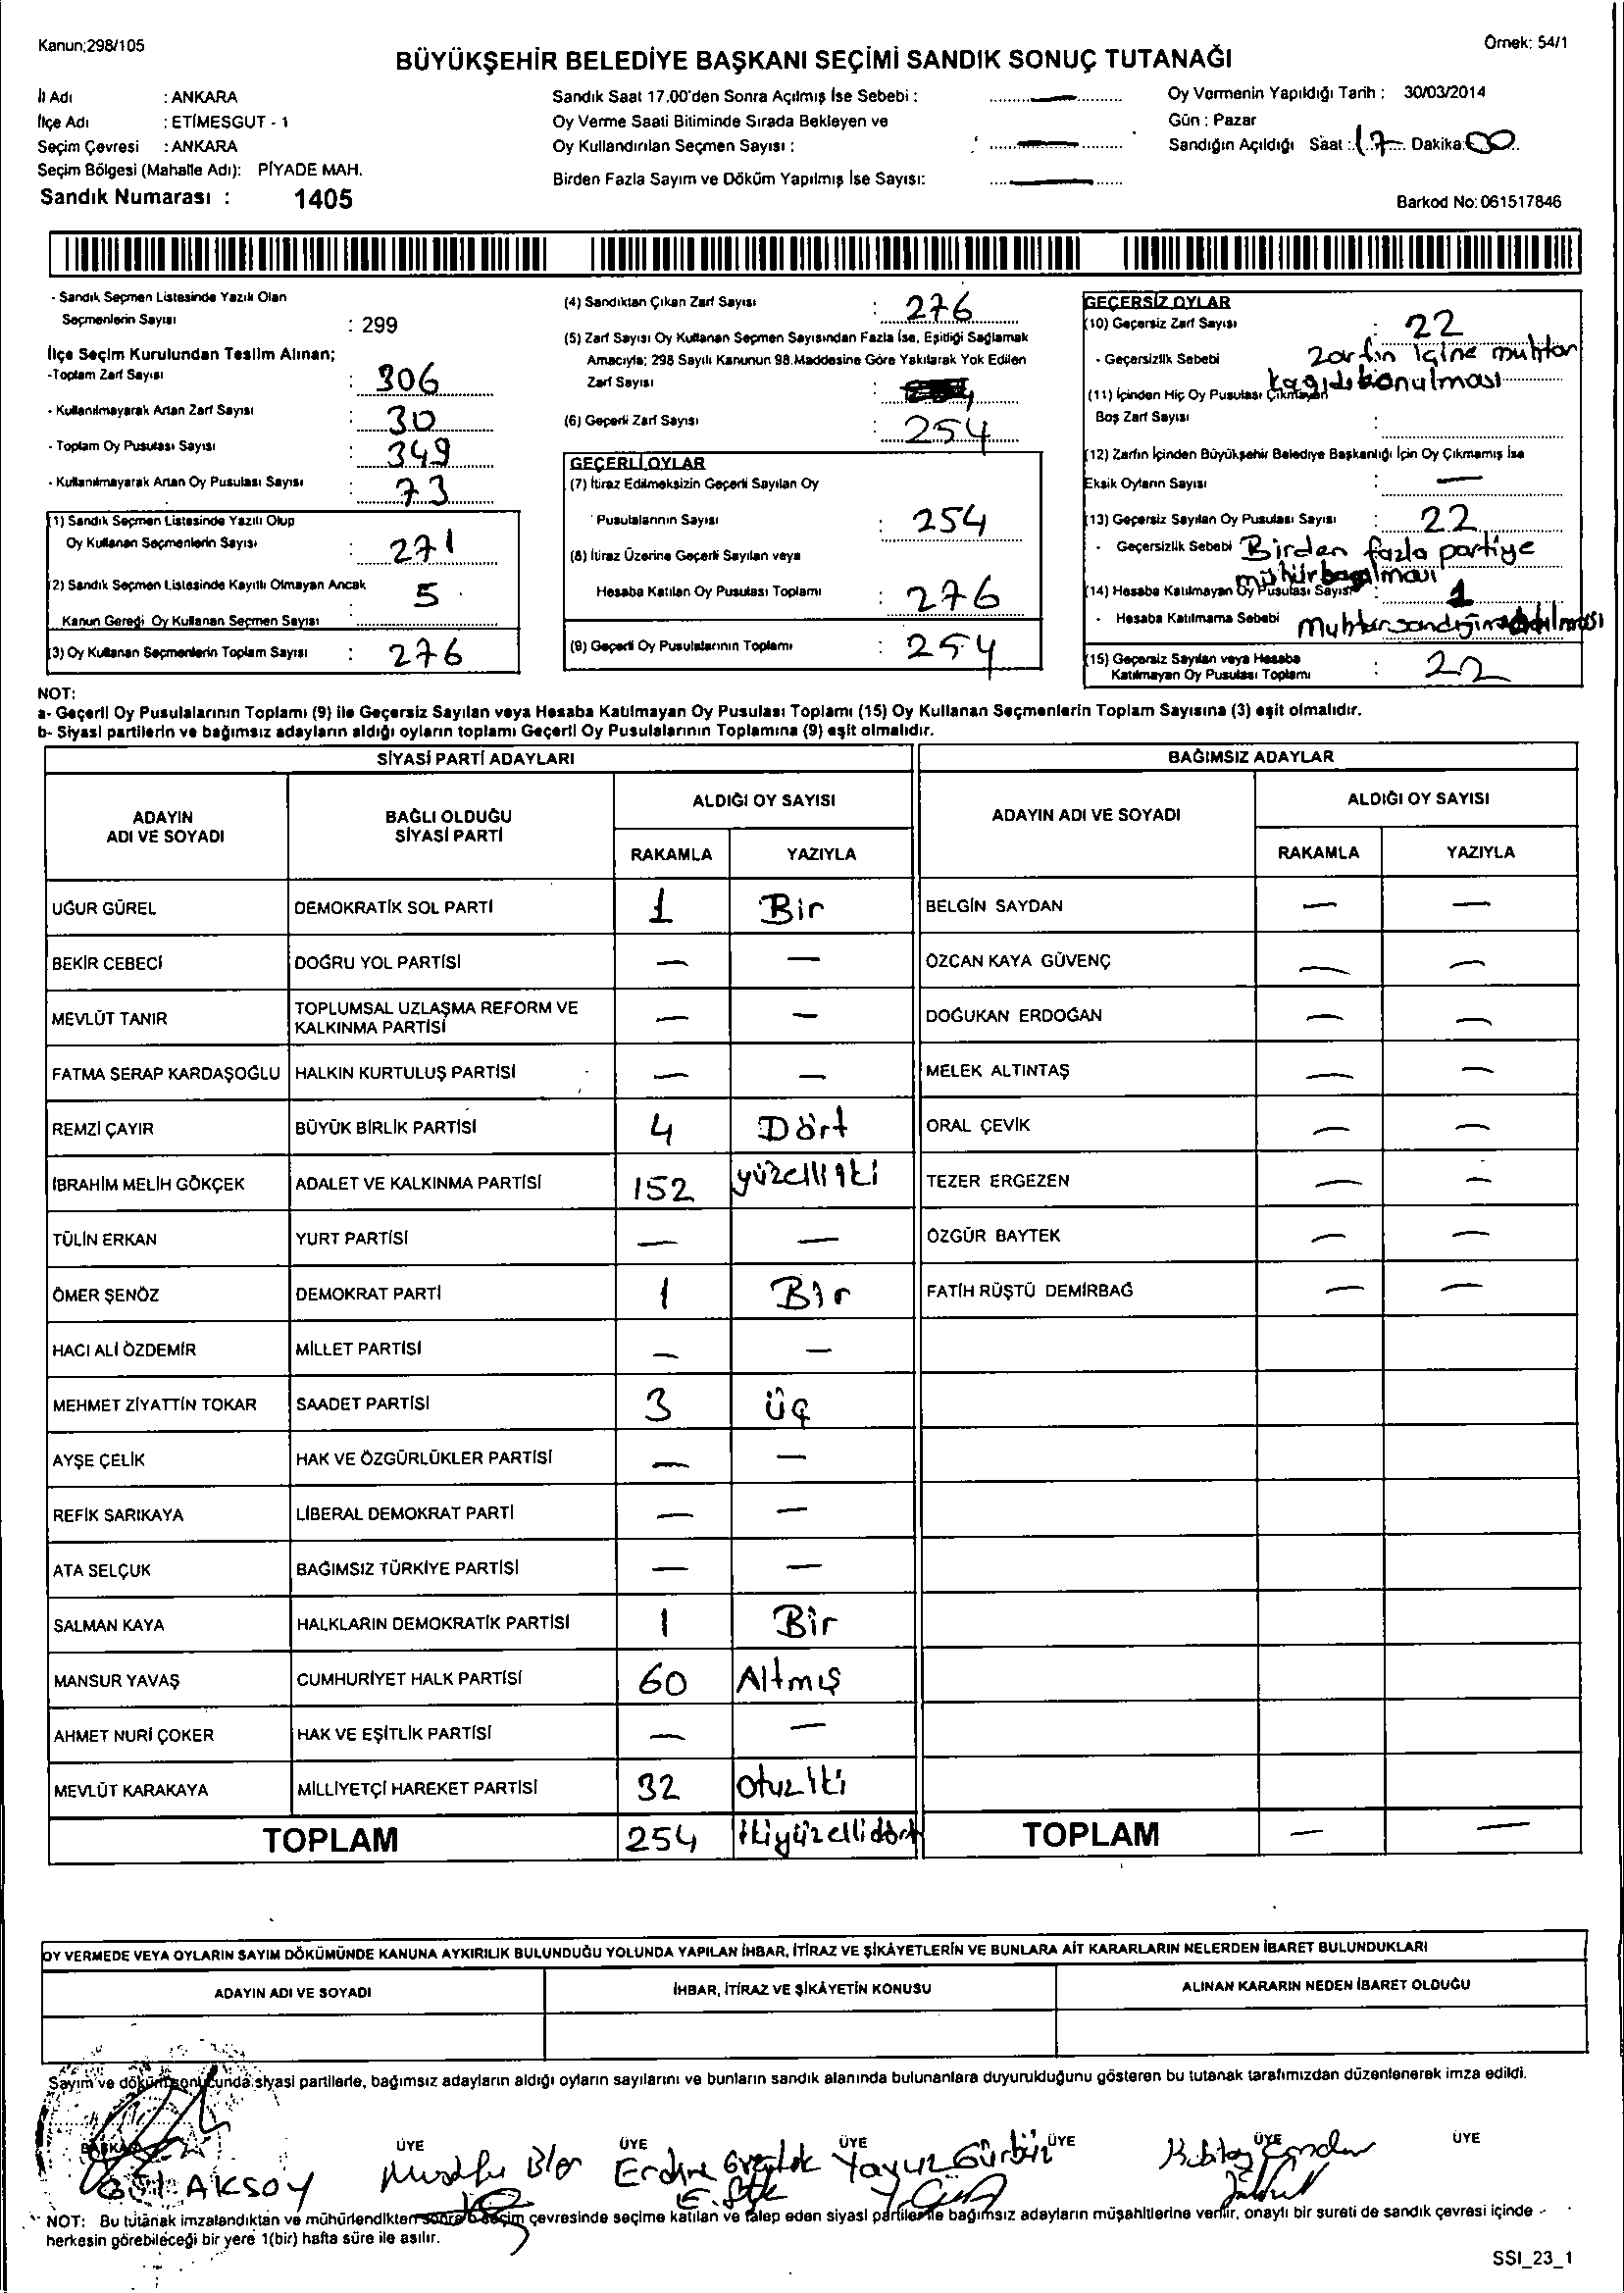 Kanun;298/105
Örnek: 54/1
BÜYÜKŞEHİR BELEDİYE BAŞKANI SEÇİMİ SANDIK SONUÇ TUTANAĞI
İl Adı : ANKARA
İlçe Adı : ETİMESGUT - 1
Seçim Çevresi : ANKARA
Seçim Bölgesi (Mahalle Adı): PİYADE MAH.
Sandık Numarası : 1405
Sandık Saat 17.00'den Sonra Açılmış İse Sebebi :
Oy Verme Saati Bitiminde Sırada Bekleyen ve
Oy Kullandırılan Seçmen Sayısı :
Birden Fazla Sayım ve Döküm Yapılmış İse Sayısı:
Oy Vermenin Yapıldığı Tarih : 30/03/2014
Gün : Pazar
Sandığın Açıldığı Saat : 17 Dakika: 00
Barkod No: 061517846
- Sandık Seçmen Listesinde Yazılı Olan
Seçmenlerin Sayısı : 299
İlçe Seçim Kurulundan Teslim Alınan;
-Toplam Zarf Sayısı : 306
- Kullanılmayarak Artan Zarf Sayısı : 30
- Toplam Oy Pusulası Sayısı : 349
- Kullanılmayarak Artan Oy Pusulası Sayısı : 73
(1) Sandık Seçmen Listesinde Yazılı Olup
Oy Kullanan Seçmenlerin Sayısı : 271
(2) Sandık Seçmen Listesinde Kayıtlı Olmayan Ancak
Kanun Gereği Oy Kullanan Seçmen Sayısı : 5
(3) Oy Kullanan Seçmenlerin Toplam Sayısı : 276
(4) Sandıktan Çıkan Zarf Sayısı : 276
(5) Zarf Sayısı Oy Kullanan Seçmen Sayısından Fazla İse, Eşitliği Sağlamak
Amacıyla; 298 Sayılı Kanunun 98.Maddesine Göre Yakılarak Yok Edilen
Zarf Sayısı :
(6) Geçerli Zarf Sayısı : 254
GEÇERLİ OYLAR
(7) İtiraz Edilmeksizin Geçerli Sayılan Oy
Pusulalarının Sayısı : 254
(8) İtiraz Üzerine Geçerli Sayılan veya
Hesaba Katılan Oy Pusulası Toplamı : 276
(9) Geçerli Oy Pusulalarının Toplamı : 254
GEÇERSİZ OYLAR
(10) Geçersiz Zarf Sayısı : 22
- Geçersizlik Sebebi zarfın içine muhtar
kağıdı konulması
(11) İçinden Hiç Oy Pusulası Çıkmayan
Boş Zarf Sayısı :
(12) Zarfın İçinden Büyükşehir Belediye Başkanlığı İçin Oy Çıkmamış İse
Eksik Oyların Sayısı : —
(13) Geçersiz Sayılan Oy Pusulası Sayısı : 22
- Geçersizlik Sebebi Birden fazla partiye
mühür basılması
(14) Hesaba Katılmayan Oy Pusulası Sayısı : 1
- Hesaba Katılmama Sebebi
(15) Geçersiz Sayılan veya Hesaba
Katılmayan Oy Pusulası Toplamı : 22
NOT:
a- Geçerli Oy Pusulalarının Toplamı (9) ile Geçersiz Sayılan veya Hesaba Katılmayan Oy Pusulası Toplamı (15) Oy Kullanan Seçmenlerin Toplam Sayısına (3) eşit olmalıdır.
b- Siyasi partilerin ve bağımsız adayların aldığı oyların toplamı Geçerli Oy Pusulalarının Toplamına (9) eşit olmalıdır.
SİYASİ PARTİ ADAYLARI
BAĞIMSIZ ADAYLAR
ADAYIN ADI VE SOYADI
BAĞLI OLDUĞU SİYASİ PARTİ
ALDIĞI OY SAYISI
RAKAMLA YAZIYLA
ADAYIN ADI VE SOYADI
ALDIĞI OY SAYISI
RAKAMLA YAZIYLA
UĞUR GÜREL DEMOKRATİK SOL PARTİ 1 Bir BELGİN SAYDAN — —
BEKİR CEBECİ DOĞRU YOL PARTİSİ — — ÖZCAN KAYA GÜVENÇ — —
MEVLÜT TANIR TOPLUMSAL UZLAŞMA REFORM VE KALKINMA PARTİSİ — — DOĞUKAN ERDOĞAN — —
FATMA SERAP KARDAŞOĞLU HALKIN KURTULUŞ PARTİSİ — — MELEK ALTINTAŞ — —
REMZİ ÇAYIR BÜYÜK BİRLİK PARTİSİ 4 Dört ORAL ÇEVİK — —
İBRAHİM MELİH GÖKÇEK ADALET VE KALKINMA PARTİSİ 152 yüzelliiki TEZER ERGEZEN — —
TÜLİN ERKAN YURT PARTİSİ — — ÖZGÜR BAYTEK — —
ÖMER ŞENÖZ DEMOKRAT PARTİ 1 Bir FATİH RÜŞTÜ DEMİRBAĞ — —
HACI ALİ ÖZDEMİR MİLLET PARTİSİ — —
MEHMET ZİYATTİN TOKAR SAADET PARTİSİ 3 üç
AYŞE ÇELİK HAK VE ÖZGÜRLÜKLER PARTİSİ — —
REFİK SARIKAYA LİBERAL DEMOKRAT PARTİ — —
ATA SELÇUK BAĞIMSIZ TÜRKİYE PARTİSİ — —
SALMAN KAYA HALKLARIN DEMOKRATİK PARTİSİ 1 Bir
MANSUR YAVAŞ CUMHURİYET HALK PARTİSİ 60 Altmış
AHMET NURİ ÇOKER HAK VE EŞİTLİK PARTİSİ — —
MEVLÜT KARAKAYA MİLLİYETÇİ HAREKET PARTİSİ 32 otuziki
TOPLAM 254 ikiyüzellidört TOPLAM — —
OY VERMEDE VEYA OYLARIN SAYIM DÖKÜMÜNDE KANUNA AYKIRILIK BULUNDUĞU YOLUNDA YAPILAN İHBAR, İTİRAZ VE ŞİKÂYETLERİN VE BUNLARA AİT KARARLARIN NELERDEN İBARET BULUNDUKLARI
ADAYIN ADI VE SOYADI İHBAR, İTİRAZ VE ŞİKÂYETİN KONUSU ALINAN KARARIN NEDEN İBARET OLDUĞU
Sayım ve döküm sonucunda siyasi partilerle, bağımsız adayların aldığı oyların sayılarını ve bunların sandık alanında bulunanlara duyurulduğunu gösteren bu tutanak tarafımızdan düzenlenerek imza edildi.
BAŞKAN ÜYE ÜYE ÜYE ÜYE ÜYE ÜYE
AKSOY Yavuz Gürbüz
NOT: Bu tutanak imzalandıktan ve mühürlendikten sonra o seçim çevresinde seçime katılan ve talep eden siyasi partilerle bağımsız adayların müşahitlerine verilir, onaylı bir sureti de sandık çevresi içinde
herkesin görebileceği bir yere 1(bir) hafta süre ile asılır.
SSI_23_1